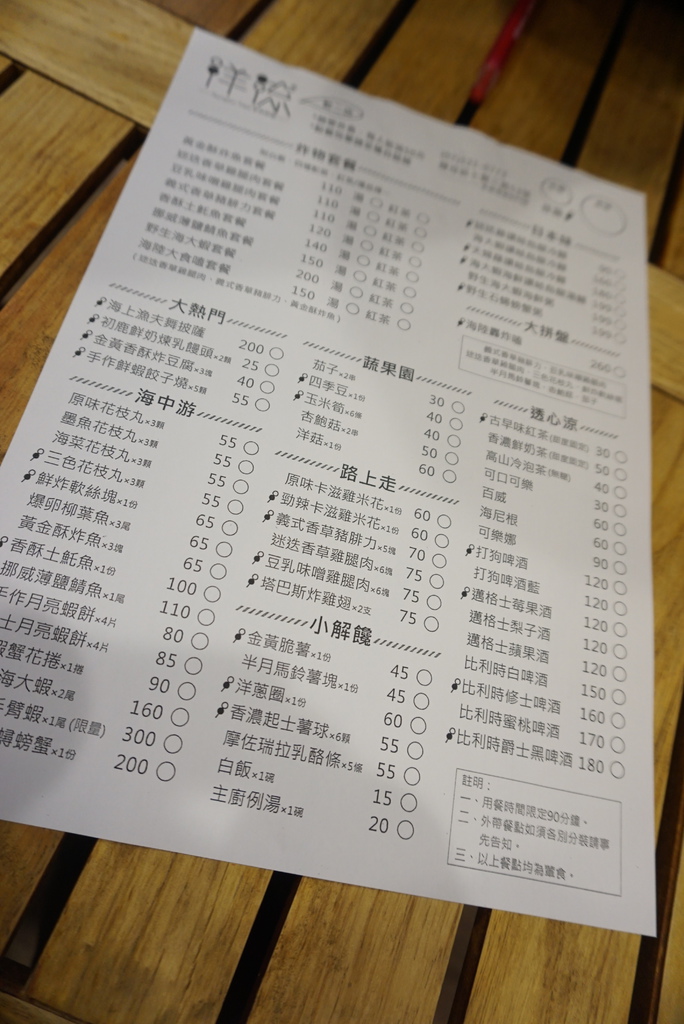 炸物套餐
黃金酥炸魚套餐 110 湯 紅茶
迷迭香草雞腿肉套餐 110 湯 紅茶
豆乳味噌雞腿肉套餐 110 湯 紅茶
義式香草豬腓力套餐 120 湯 紅茶
香酥土魠魚套餐 140 湯 紅茶
挪威薄鹽鯖魚套餐 150 湯 紅茶
野生海大蝦套餐 200 湯 紅茶
海陸大食嗑套餐 150 湯 紅茶
(迷迭香草雞腿肉、義式香草豬腓力、黃金酥炸魚)
大熱門
海上漁夫舞披薩 200
初鹿鮮奶煉乳饅頭×2顆 25
金黃香酥炸豆腐×3塊 40
手作鮮蝦餃子燒×5顆 55
海中游
原味花枝丸×3顆 55
墨魚花枝丸×3顆 55
海菜花枝丸×3顆 55
三色花枝丸×3顆 55
鮮炸軟絲塊×1份 65
爆卵柳葉魚×3尾 65
黃金酥炸魚×3塊 65
香酥土魠魚×1份 100
挪威薄鹽鯖魚×1尾 110
手作月亮蝦餅×4片 80
士月亮蝦餅×4片 85
蝦蟹花捲×1捲 90
海大蝦×2尾 160
臂蝦×1尾(限量) 300
螃蟹×1份 200
蔬果園
茄子×2串 30
四季豆×1份 40
玉米筍×6條 40
杏鮑菇×2串 50
洋菇×1份 60
路上走
原味卡滋雞米花×1份 60
勁辣卡滋雞米花×1份 60
義式香草豬腓力×5塊 70
迷迭香草雞腿肉×6塊 75
豆乳味噌雞腿肉×6塊 75
塔巴斯炸雞翅×2支 75
小解饞
金黃脆薯×1份 45
半月馬鈴薯塊×1份 45
洋蔥圈×1份 60
香濃起士薯球×6顆 55
摩佐瑞拉乳酪條×5條 55
白飯×1碗 15
主廚例湯×1碗 20
日本味
大拼盤
海陸轟炸嗑 260
透心涼
古早味紅茶(甜度固定) 30
香濃鮮奶茶(甜度固定) 50
高山冷泡茶(無糖) 40
可口可樂 30
百威 60
海尼根 60
可樂娜 90
打狗啤酒 120
打狗啤酒藍 120
邁格士莓果酒 120
邁格士梨子酒 120
邁格士蘋果酒 120
比利時白啤酒 150
比利時修士啤酒 160
比利時蜜桃啤酒 170
比利時爵士黑啤酒 180
註明：
一、用餐時間限定90分鐘。
二、外帶餐點如須各別分裝請事
先告知。
三、以上餐點均為葷食。